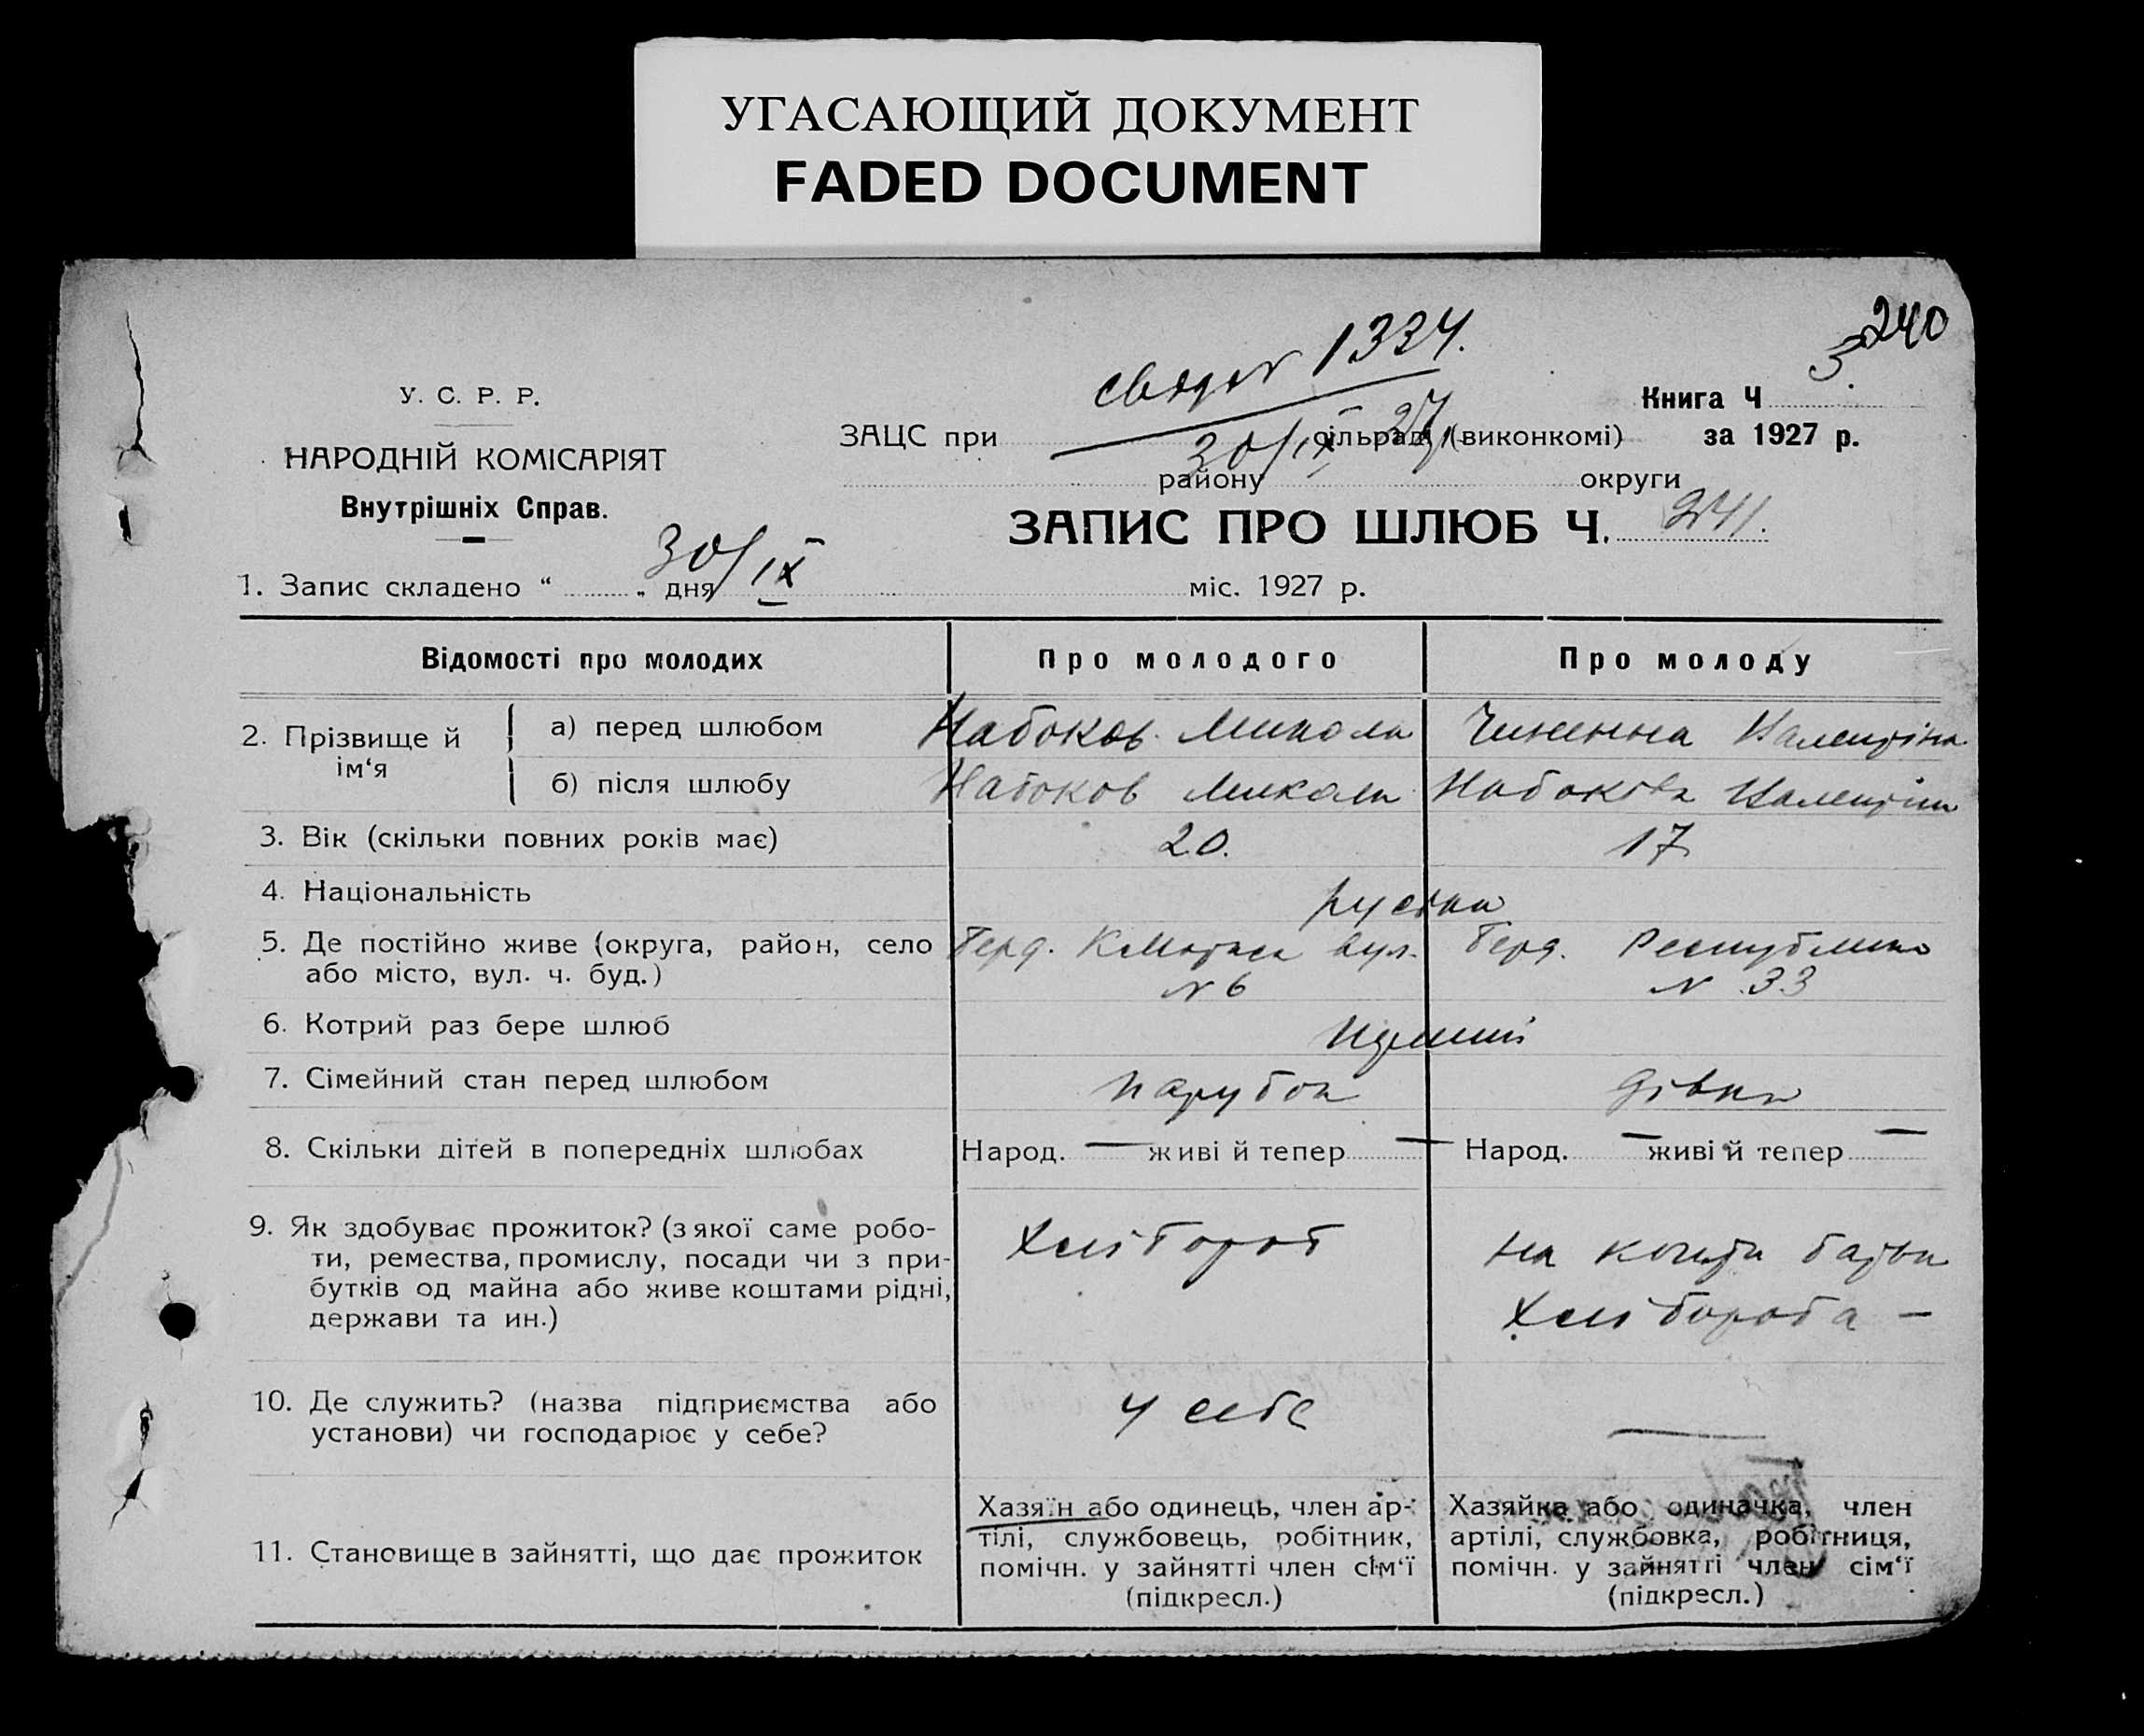 УГАСАЮЩИЙ ДОКУМЕНТ
FADED DOCUMENT
240
3
1334.
У. С. Р. Р.
Книга Ч
ЗАЦС при сільраді (виконкомі) за 1927 р.
30/IX 27
НАРОДНІЙ КОМІСАРІЯТ
району округи
Внутрішніх Справ.
ЗАПИС ПРО ШЛЮБ Ч. 241.
30/IX
1. Запис складено “ „ дня міс. 1927 р.
Відомості про молодих Про молодого Про молоду
2. Прізвище й ім‘я а) перед шлюбом Набоков Микола Валентіна
б) після шлюбу Набоков Микола Набокова Валентіна
3. Вік (скільки повних років має) 20. 17
4. Національність руські
5. Де постійно живе (округа, район, село Берд. вул. Берд. Республики
або місто, вул. ч. буд.) № 6 № 33
6. Котрий раз бере шлюб перший
7. Сімейний стан перед шлюбом парубок дівка
8. Скільки дітей в попередніх шлюбах Народ. — живі й тепер — Народ. — живі й тепер —
9. Як здобуває прожиток? (з якої саме робо- Хлібороб на кошти батька
ти, ремества, промислу, посади чи з при- хлібороба —
бутків од майна або живе коштами рідні,
держави та ин.)
10. Де служить? (назва підприємства або у себе —
установи) чи господарює у себе?
11. Становище в зайнятті, що дає прожиток
Хазяїн або одинець, член ар-
тілі, службовець, робітник,
помічн. у зайнятті член сім‘ї
(підкресл.)
Хазяйка або одиначка, член
артілі, службовка, робітниця,
помічн. у зайнятті член сім‘ї
(підкресл.)